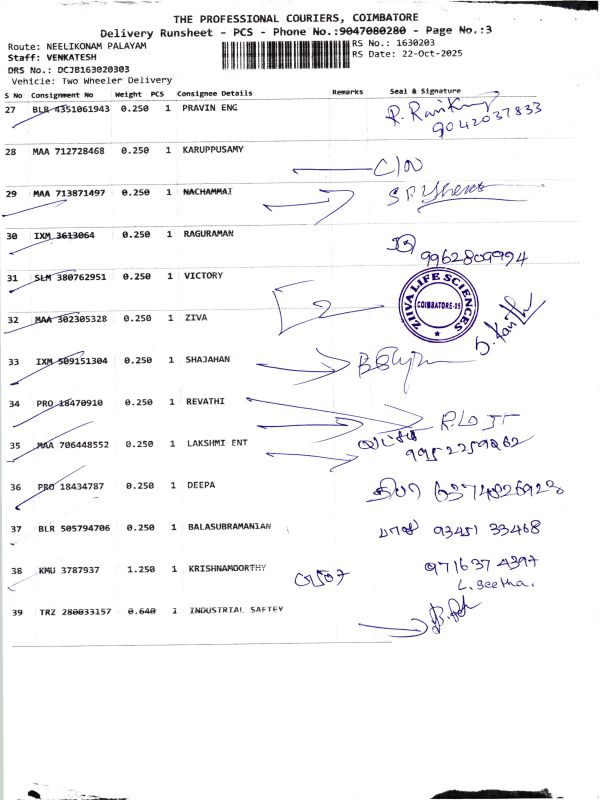 THE PROFESSIONAL COURIERS, COIMBATORE
Delivery Runsheet - PCS - Phone No.:9047080280 - Page No.:3
Route: NEELIKONAM PALAYAM RS No.: 1630203
Staff: VENKATESH RS Date: 22-Oct-2025
DRS No.: DCJB163020303
Vehicle: Two Wheeler Delivery
S No Consignment No Weight PCS Consignee Details Remarks Seal & Signature
27 BLR 4351061943 0.250 1 PRAVIN ENG
9042037833
28 MAA 712728468 0.250 1 KARUPPUSAMY
29 MAA 713871497 0.250 1 NACHAMMAI
30 IXM 3613064 0.250 1 RAGURAMAN
9962809994
31 SLM 380762951 0.250 1 VICTORY
2
ZIIVA LIFE SCIENCES
COIMBATORE-05
32 MAA 302305328 0.250 1 ZIVA
33 IXM 509151304 0.250 1 SHAJAHAN
34 PRO 18470910 0.250 1 REVATHI
35 MAA 706448552 0.250 1 LAKSHMI ENT
36 PRO 18434787 0.250 1 DEEPA
தீபா 6374826923
37 BLR 505794706 0.250 1 BALASUBRAMANIAN
பாலு 93451 33468
38 KMU 3787937 1.250 1 KRISHNAMOORTHY
971637 4397
L. Seetha.
39 TRZ 280033157 0.640 1 INDUSTRIAL SAFTEY